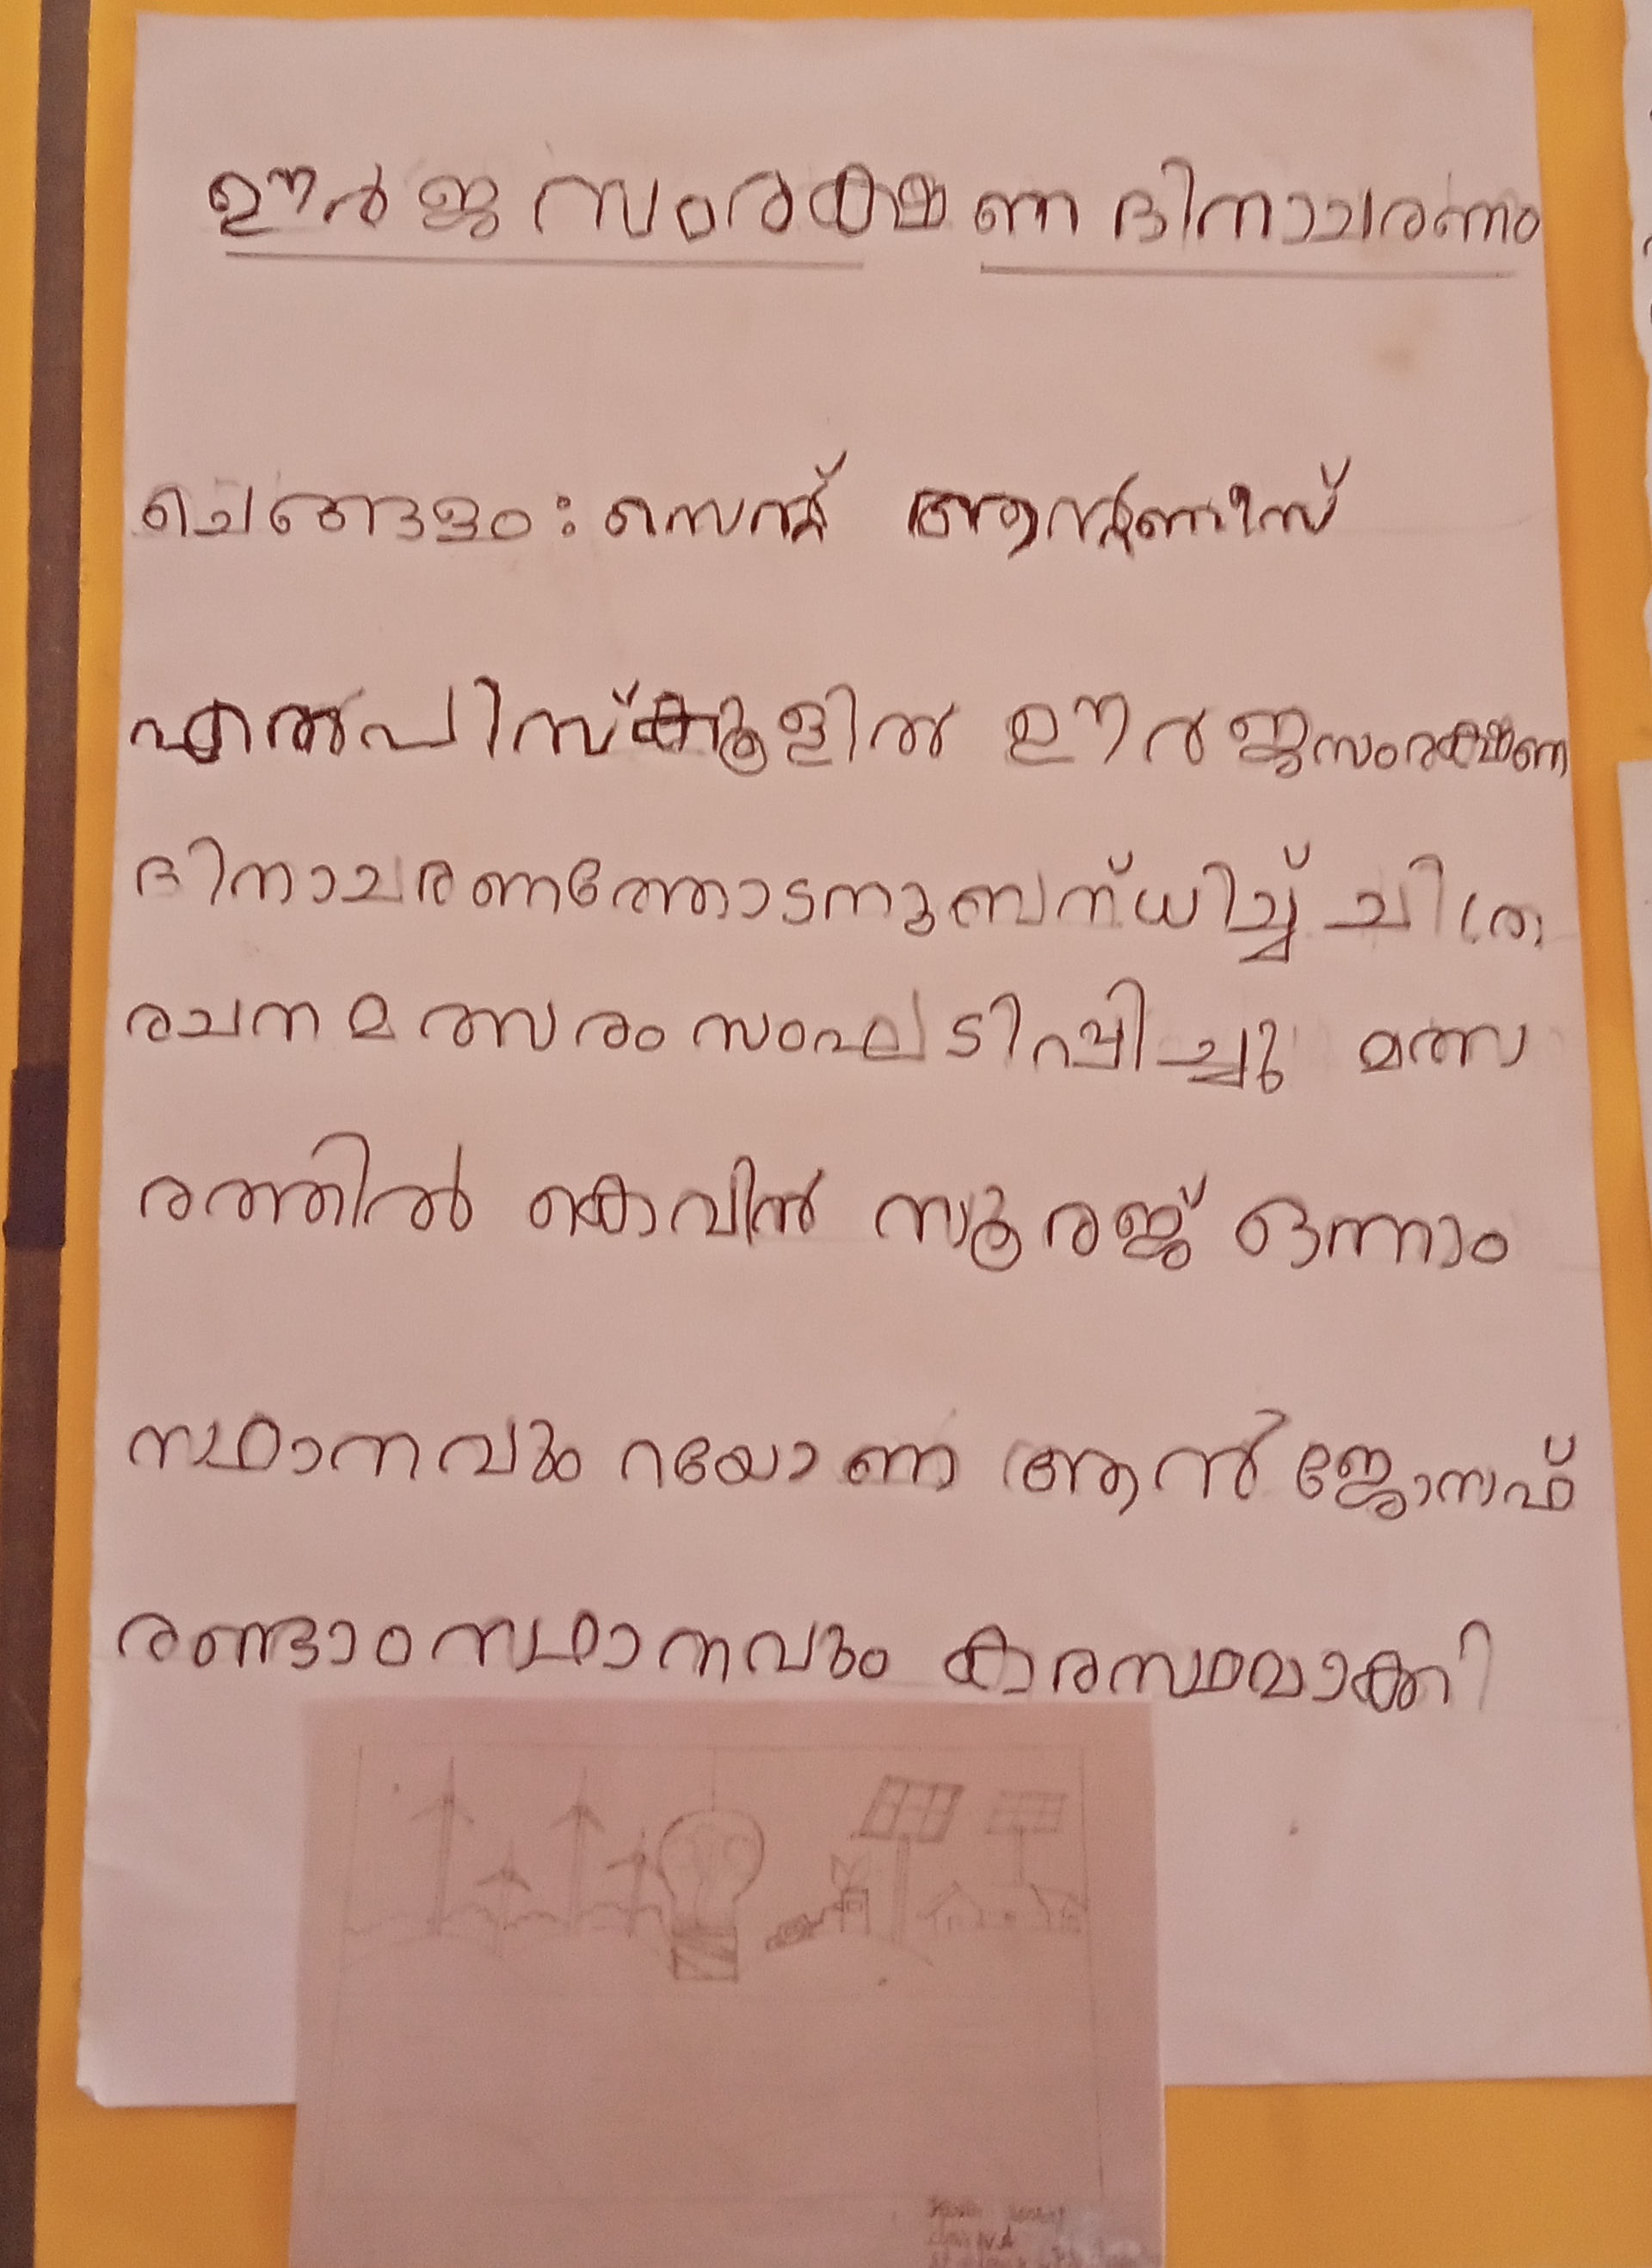 ഊർജ സംരക്ഷണ ദിനാചരണം
ചെങ്ങളം: സെന്റ് ആന്റണീസ്
എൽപിസ്കൂളിൽ ഊർജസംരക്ഷണ
ദിനാചരണത്തോടനുബന്ധിച്ച് ചിത്ര
രചന മത്സരം സംഘടിപ്പിച്ചു മത്സ
രത്തിൽ കെവിൻ സൂരജ് ഒന്നാം
സ്ഥാനവും റയോണ ആൻ ജോസഫ്
രണ്ടാംസ്ഥാനവും കരസ്ഥമാക്കി